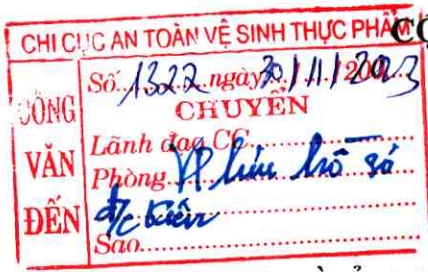 CHI CỤC AN TOÀN VỆ SINH THỰC PHẨM CỘ
CÔNG VĂN ĐẾN
Số: 1322 ngày 30/11/2023
CHUYỂN
Lãnh đạo CC
Phòng VP lưu hồ sơ
đ/c Kiên
Sao